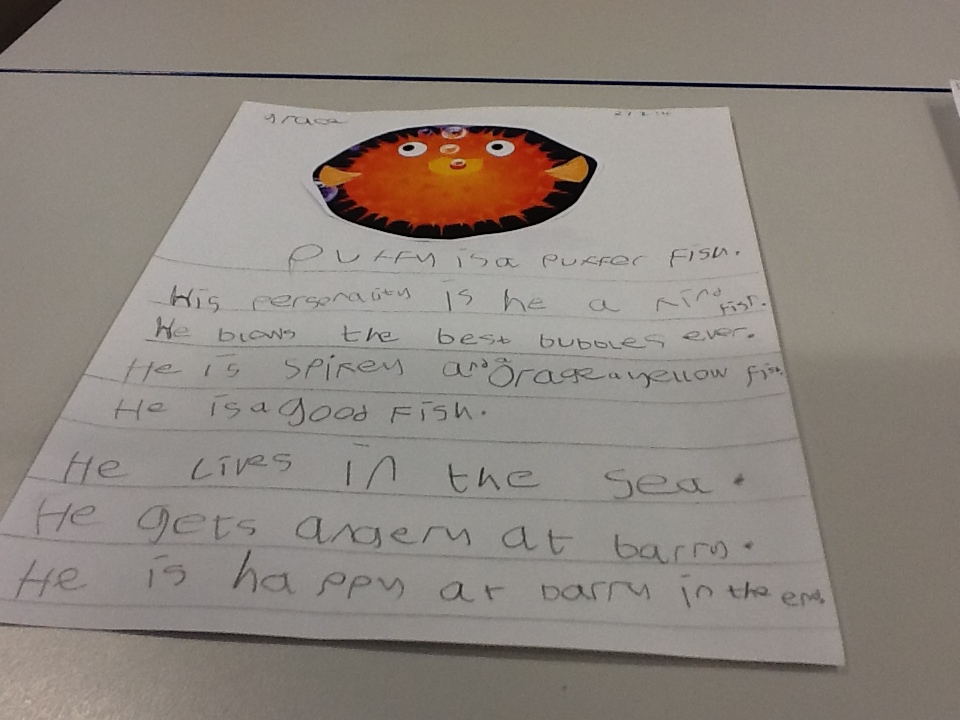 grace
Puffy is a puffer fish.
His personality is he a kind fish.
He blows the best bubbles ever.
He is spikey and a orage a yellow fish.
He is a good fish.
He lives in the sea.
He gets angery at barry.
He is happy at barry in the end.